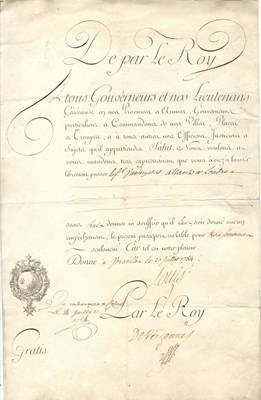 De par Le Roy
A tous Gouverneurs et nos Lieutenans
Généraux en nos Provinces & Armées, Gouverneurs
particuliers & Commandans de nos Villes, Places
& Troupes, & à tous autres nos Officiers, Justiciers &
Sujets qu'il appartiendra Salut. Nous voulons &
vous mandons très expressément que vous ayez à laisser
librement passer
sans donner ni souffrir qu'il soit donné aucun
empêchement, le présent passeport valable pour
seulement Car tel est notre plaisir
Donné à Versailles le
Louis
Par Le Roy
De Vergennes
Gratis